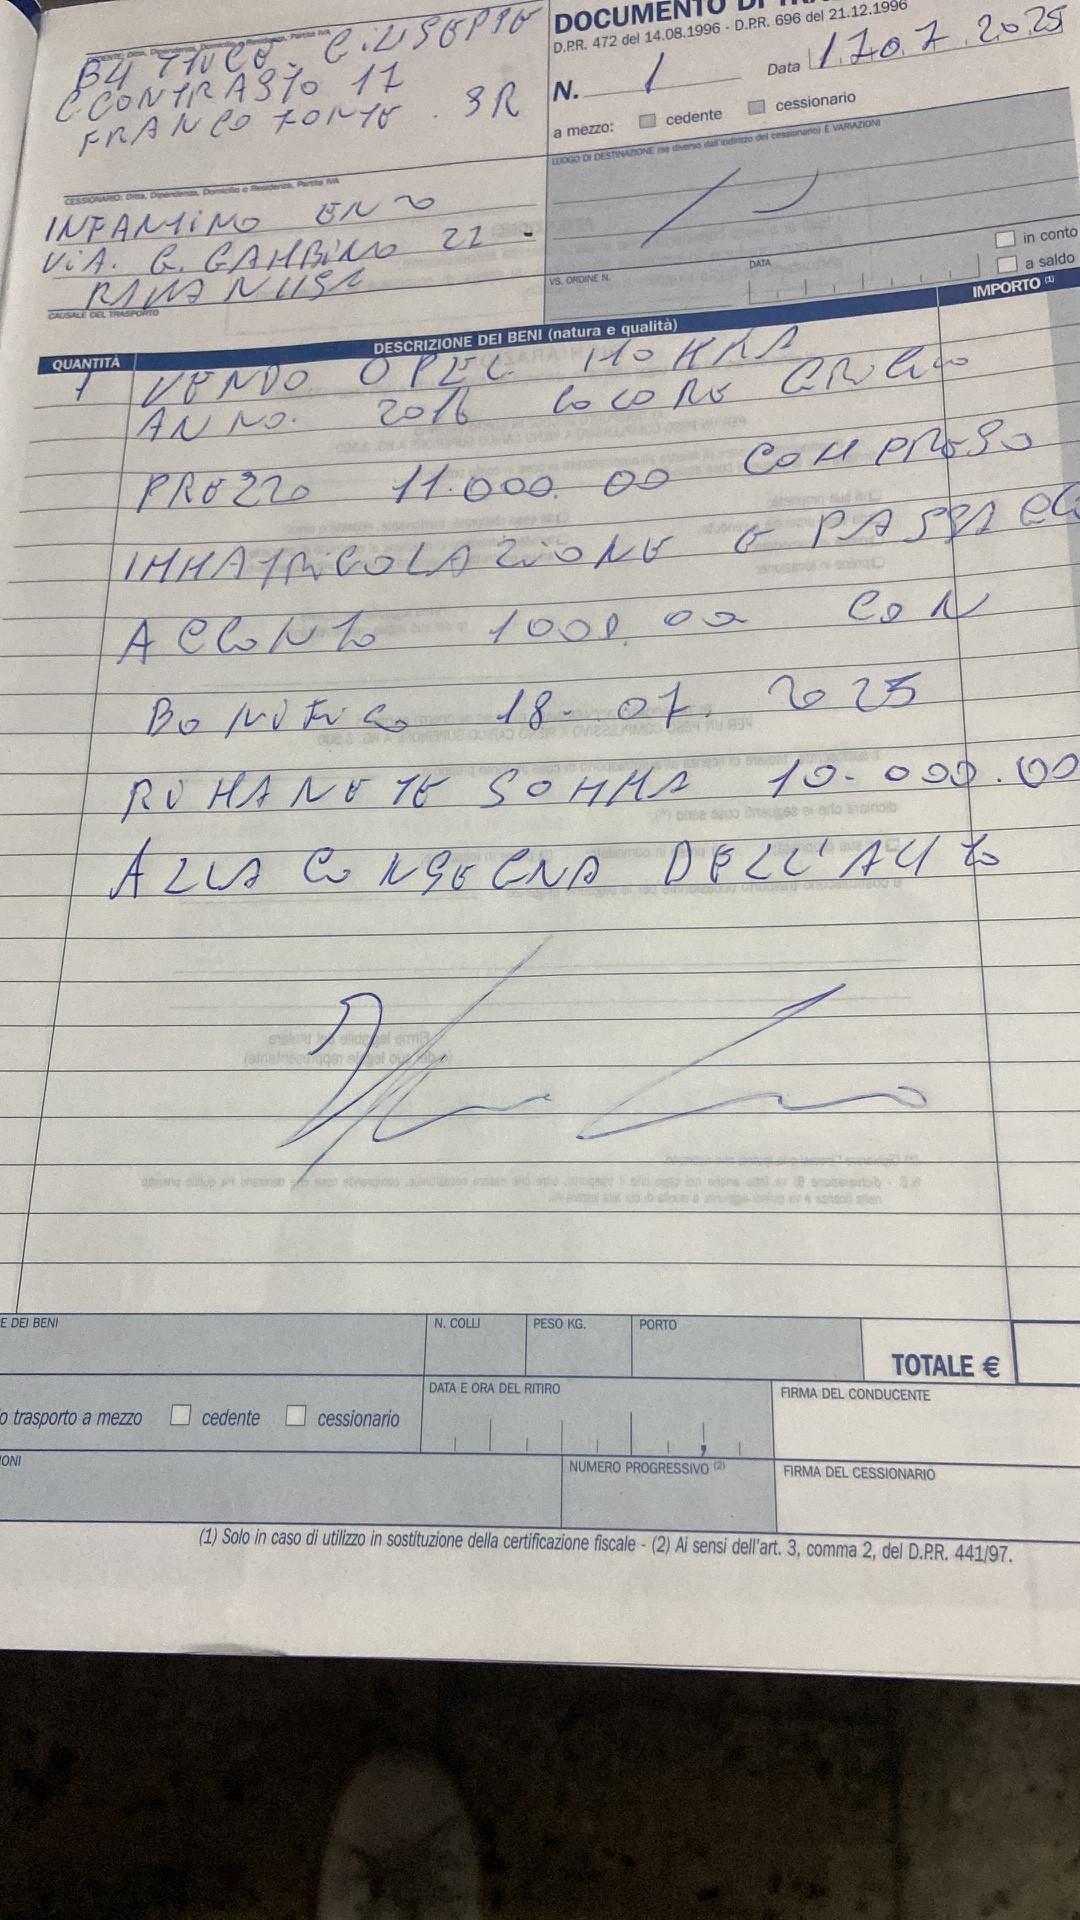 DOCUMENTO DI TRA
D.P.R. 472 del 14.08.1996 - D.P.R. 696 del 21.12.1996
N. 1 Data 17.07.2025
a mezzo: cedente cessionario
GIUSEPPE
CONTRASTO 17
FRANCOFONTE. SR
CESSIONARIO: Ditta, Dipendenza, Domicilio o Residenza, Partita IVA
INFANTINO ENZO
VIA. G. GAMBINO 22 -
CAUSALE DEL TRASPORTO
LUOGO DI DESTINAZIONE (se diverso dall'indirizzo del cessionario) E VARIAZIONI
VS. ORDINE N. DATA
in conto
a saldo
QUANTITÀ DESCRIZIONE DEI BENI (natura e qualità) IMPORTO (1)
1 VENDO OPEL MOKKA
ANNO. 2016 COLORE GRIGIO
PREZZO 11.000.00 COMPRESO
IMMATRICOLAZIONE E PASSAGG
ACCONTO 1000.00 CON
BONIFICO 18-07. 2025
RIMANETE SOMMA 10-000.00
ALLA CONSEGNA DELL'AUTO
E DEI BENI N. COLLI PESO KG. PORTO
TOTALE €
o trasporto a mezzo cedente cessionario
DATA E ORA DEL RITIRO
FIRMA DEL CONDUCENTE
IONI NUMERO PROGRESSIVO (2)
FIRMA DEL CESSIONARIO
(1) Solo in caso di utilizzo in sostituzione della certificazione fiscale - (2) Ai sensi dell'art. 3, comma 2, del D.P.R. 441/97.